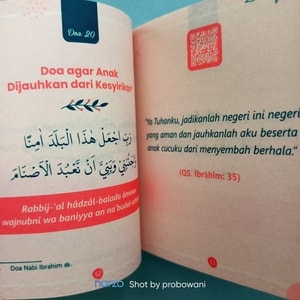 Doa 20
Doa agar Anak
Dijauhkan dari Kesyirikan
رَبِّ اجْعَلْ هٰذَا الْبَلَدَ اٰمِنًا
وَّاجْنُبْنِيْ وَبَنِيَّ اَنْ نَّعْبُدَ الْاَصْنَامَ
Rabbij-'al hādzāl-balada āminaw
wajnubni wa baniyya an na'budal-
Doa Nabi Ibrahim as.
"Ya Tuhanku, jadikanlah negeri ini negeri
yang aman dan jauhkanlah aku beserta
anak cucuku dari menyembah berhala."
(QS. Ibrahim: 35)
narzo Shot by probowani